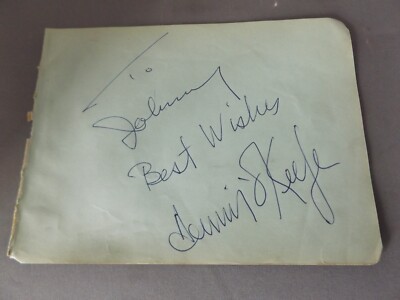 To
Johnny
Best Wishes
Dennis O'Keefe